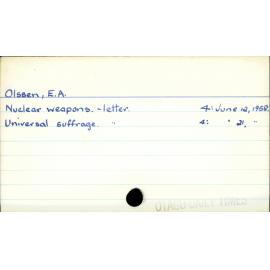 Olssen, E.A.
Nuclear weapons. - letter. 4: June 12, 1958.
Universal suffrage. " 4: " 21, "
OTAGO DAILY TIMES